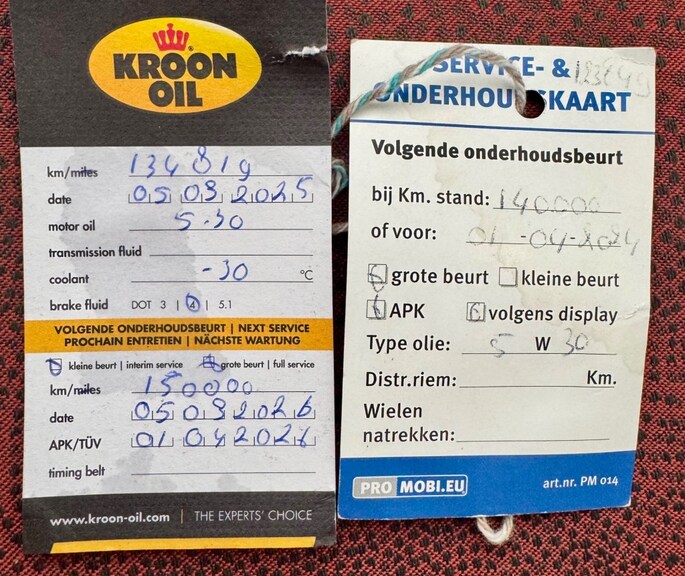 KROON
OIL
km/miles 134819
date 05 03 2025
motor oil 5-30
transmission fluid
coolant -30 °C
brake fluid DOT 3 | 4 | 5.1
VOLGENDE ONDERHOUDSBEURT | NEXT SERVICE
PROCHAIN ENTRETIEN | NÄCHSTE WARTUNG
kleine beurt | interim service grote beurt | full service
km/miles 150000
date 05 03 2026
APK/TÜV 01 04 2026
timing belt
www.kroon-oil.com | THE EXPERTS' CHOICE
SERVICE- &
ONDERHOUDSKAART
Volgende onderhoudsbeurt
bij Km. stand: 140000
of voor: 01-04-2024
grote beurt kleine beurt
APK volgens display
Type olie: 5 W 30
Distr.riem: Km.
Wielen
natrekken:
PRO MOBI.EU art.nr. PM 014